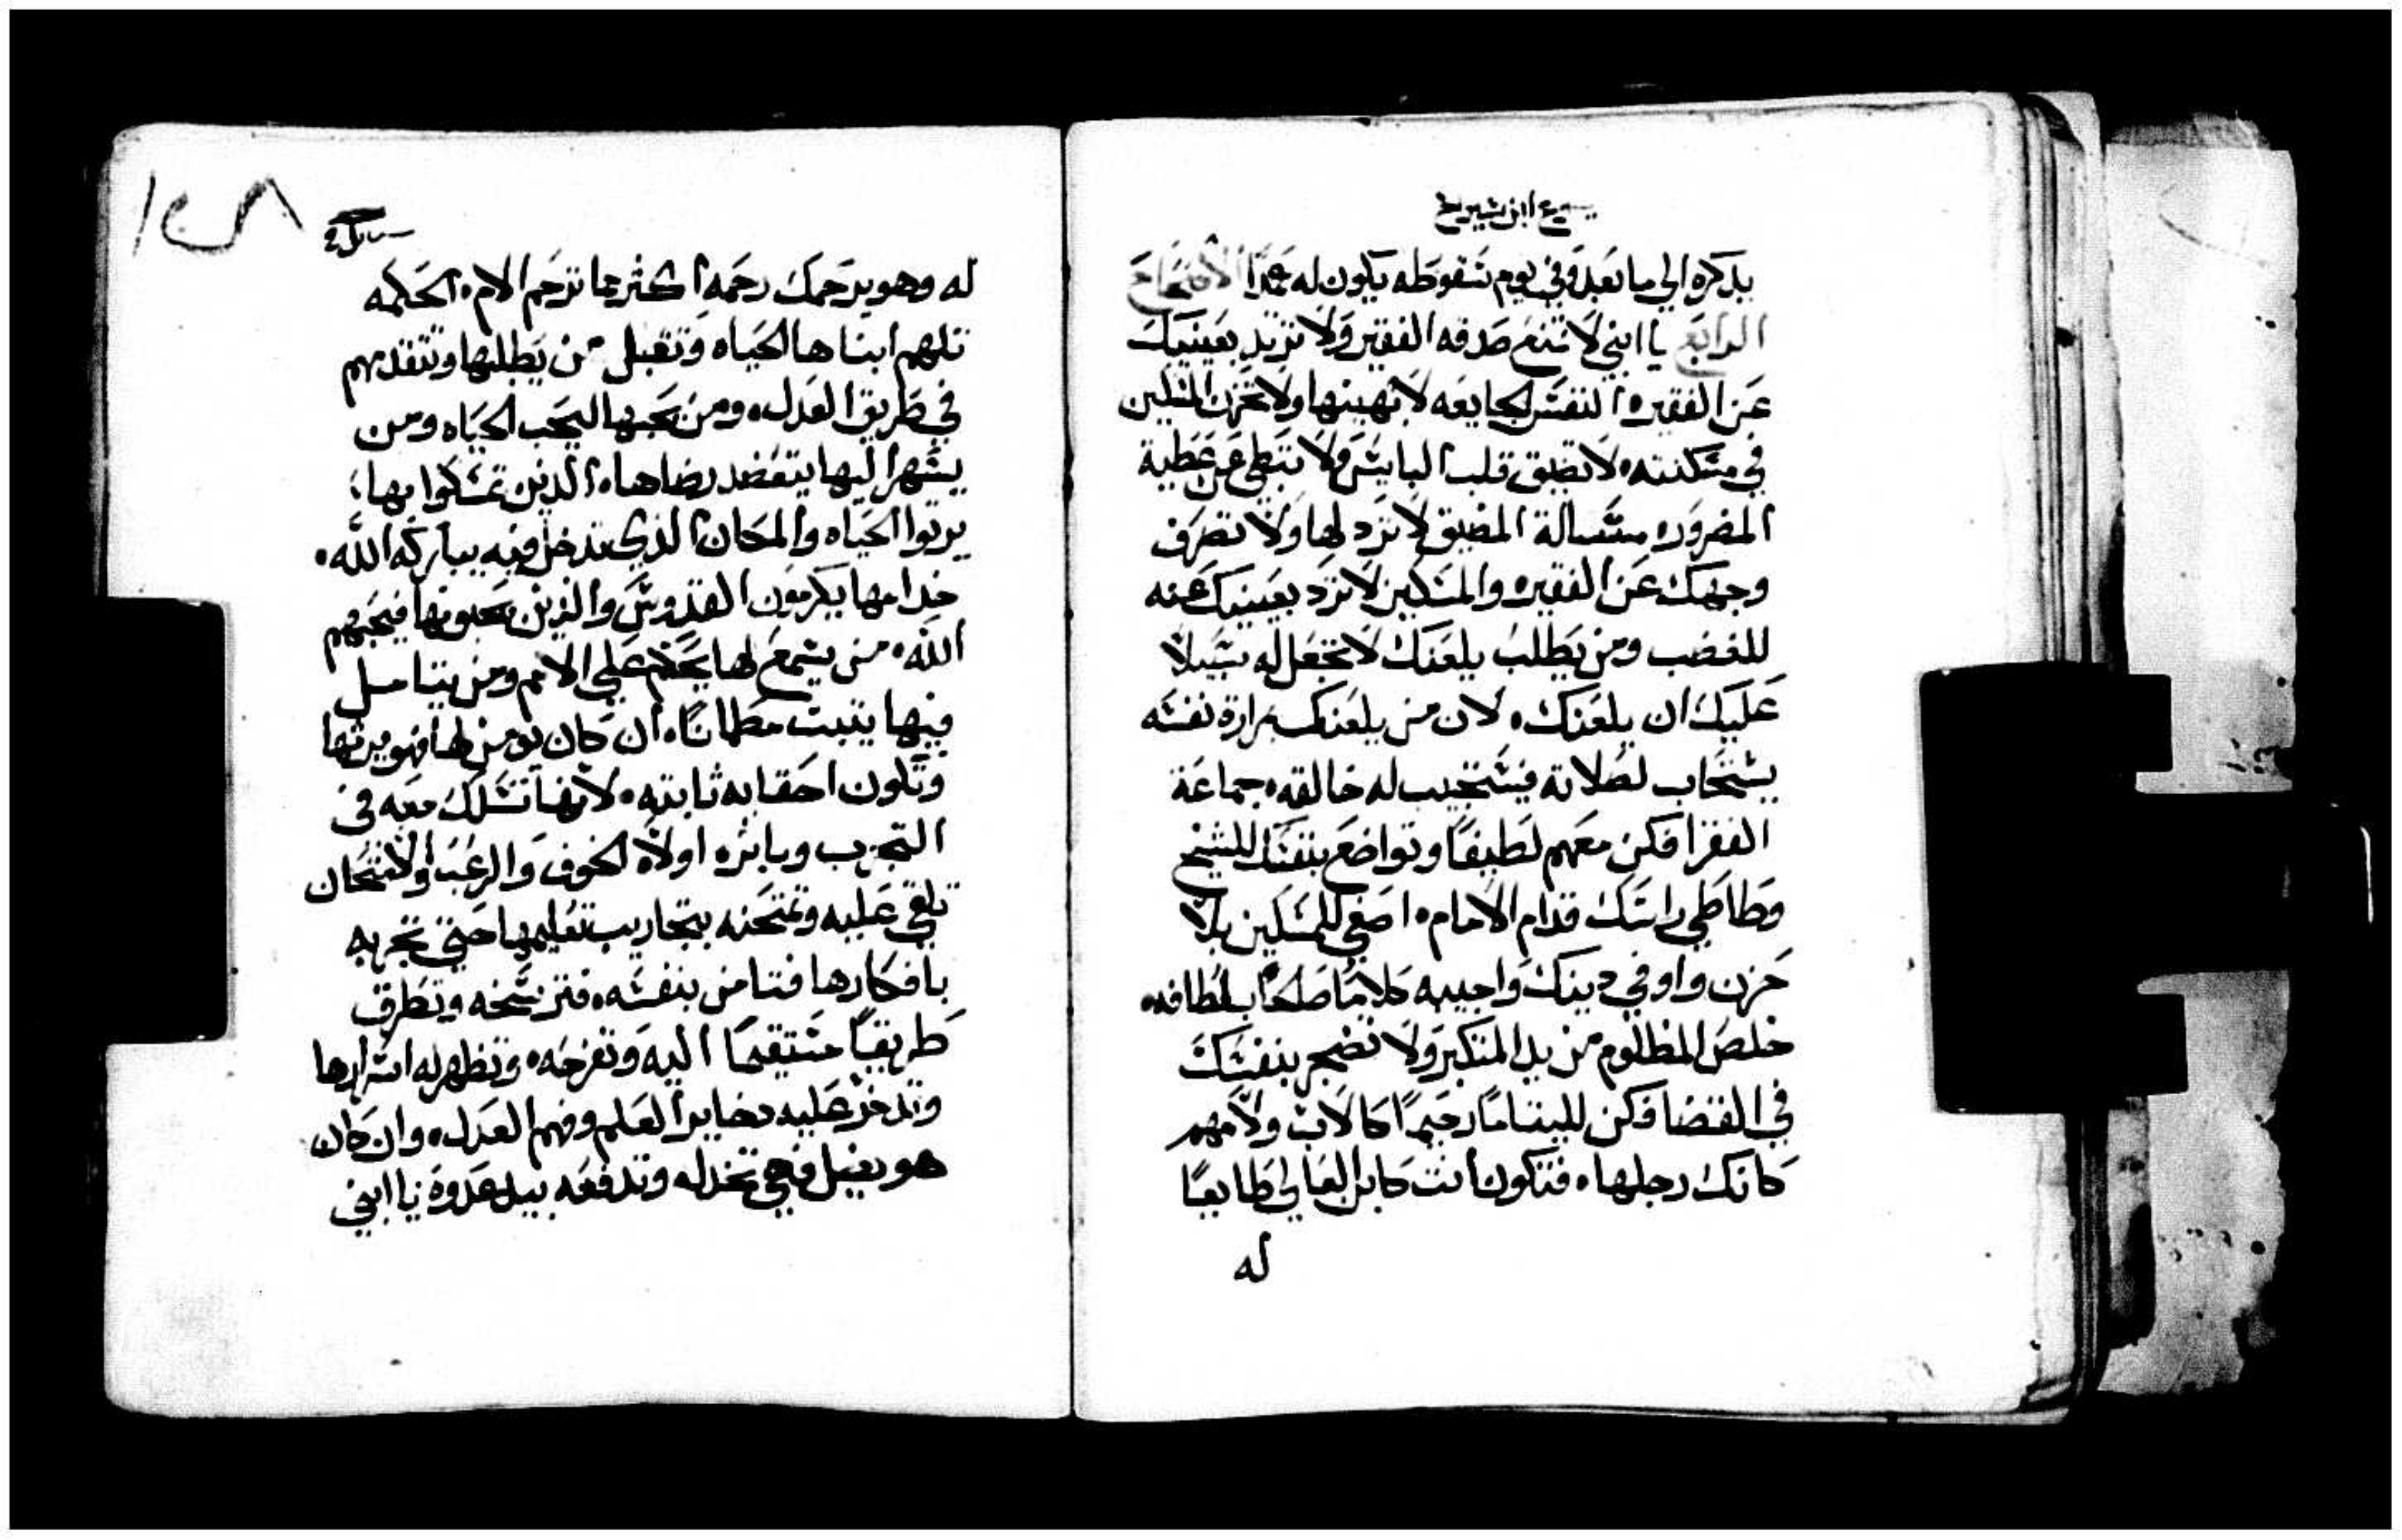 يسوع ابن شيراخ
يدكره الي ما بعد وفي يوم سقوطه يكون له عمدا الاصحاح
الرابع يا ابني لا تمنع صدقه الفقير ولا تزيد بعينيك
عن الفقيره النفس الجايعه لا تهينها ولا تحزن المسكين
في مسكنته لا تضيق قلب البايس ولا تبطي عن عطية
المضروره مسالة المضيق لا تزد لها ولا تصرف
وجهك عن الفقيره والمسكين لا ترد بعينيك عنه
للغضب ومن يطلب يلعنك لا تجعل له سبيلا
عليك ان يلعنك ه لان من يلعنك بمرارة نفسه
يستجاب لصلاته فيستجيب له خالقه جماعة
الفقرا فكن معهم لطيفا وتواضع بنفسك للشيخ
وطاطي راسك قدام الامام ه اصغي للمسكين بلا
حزن واوفي دينك واجيبه كلاما صالحا بلطافه
خلص المظلوم من يد المتكبر ولا تضجر بنفسك
في القضا فكن لليتاما رحيما كالاب ولامهم
كانك رجلها ه فتكون انت كابن العالي طايعا
له
١٢٨
له وهو يرحمك رحمه اكثر مما ترحم الام ه الحكمه
تلهم ابناها الحياه وتقبل من يطلبها وتتقدمهم
في طريق العدل ه ومن يحبها ليحب الحياه ومن
يسهر اليها يتقضد رضاها ه الدين تمسكوا بها
يرتوا الحياه والمكان الذي تدخل فيه يباركه الله
خدامها يكرمون القدوس والذين يحبونها فيحبهم
الله ه من يسمع لها يحكم علي الامم ومن يتامل
فيها يتبت مطمانا ه ان كان يومن لها فهو يرتها
وتكون احقابه ثابته ه لانها تسلك معه في
التجريب وباتره اولا الخوف والرعب والامتحان
تلقي عليه وتمتحنه بتجاريب تعليمها حتي تجربه
بافكارها فتامن بنفسه ه فترسخه وتطرق
طريقا مستقيما اليه وتفرحه ه وتظهر له اسرارها
وتدخر عليه دخاير العلم وفهم العدل ه وان كان
هو يضل فهي تخذله وتدفعه بيد عدوه يا ابني